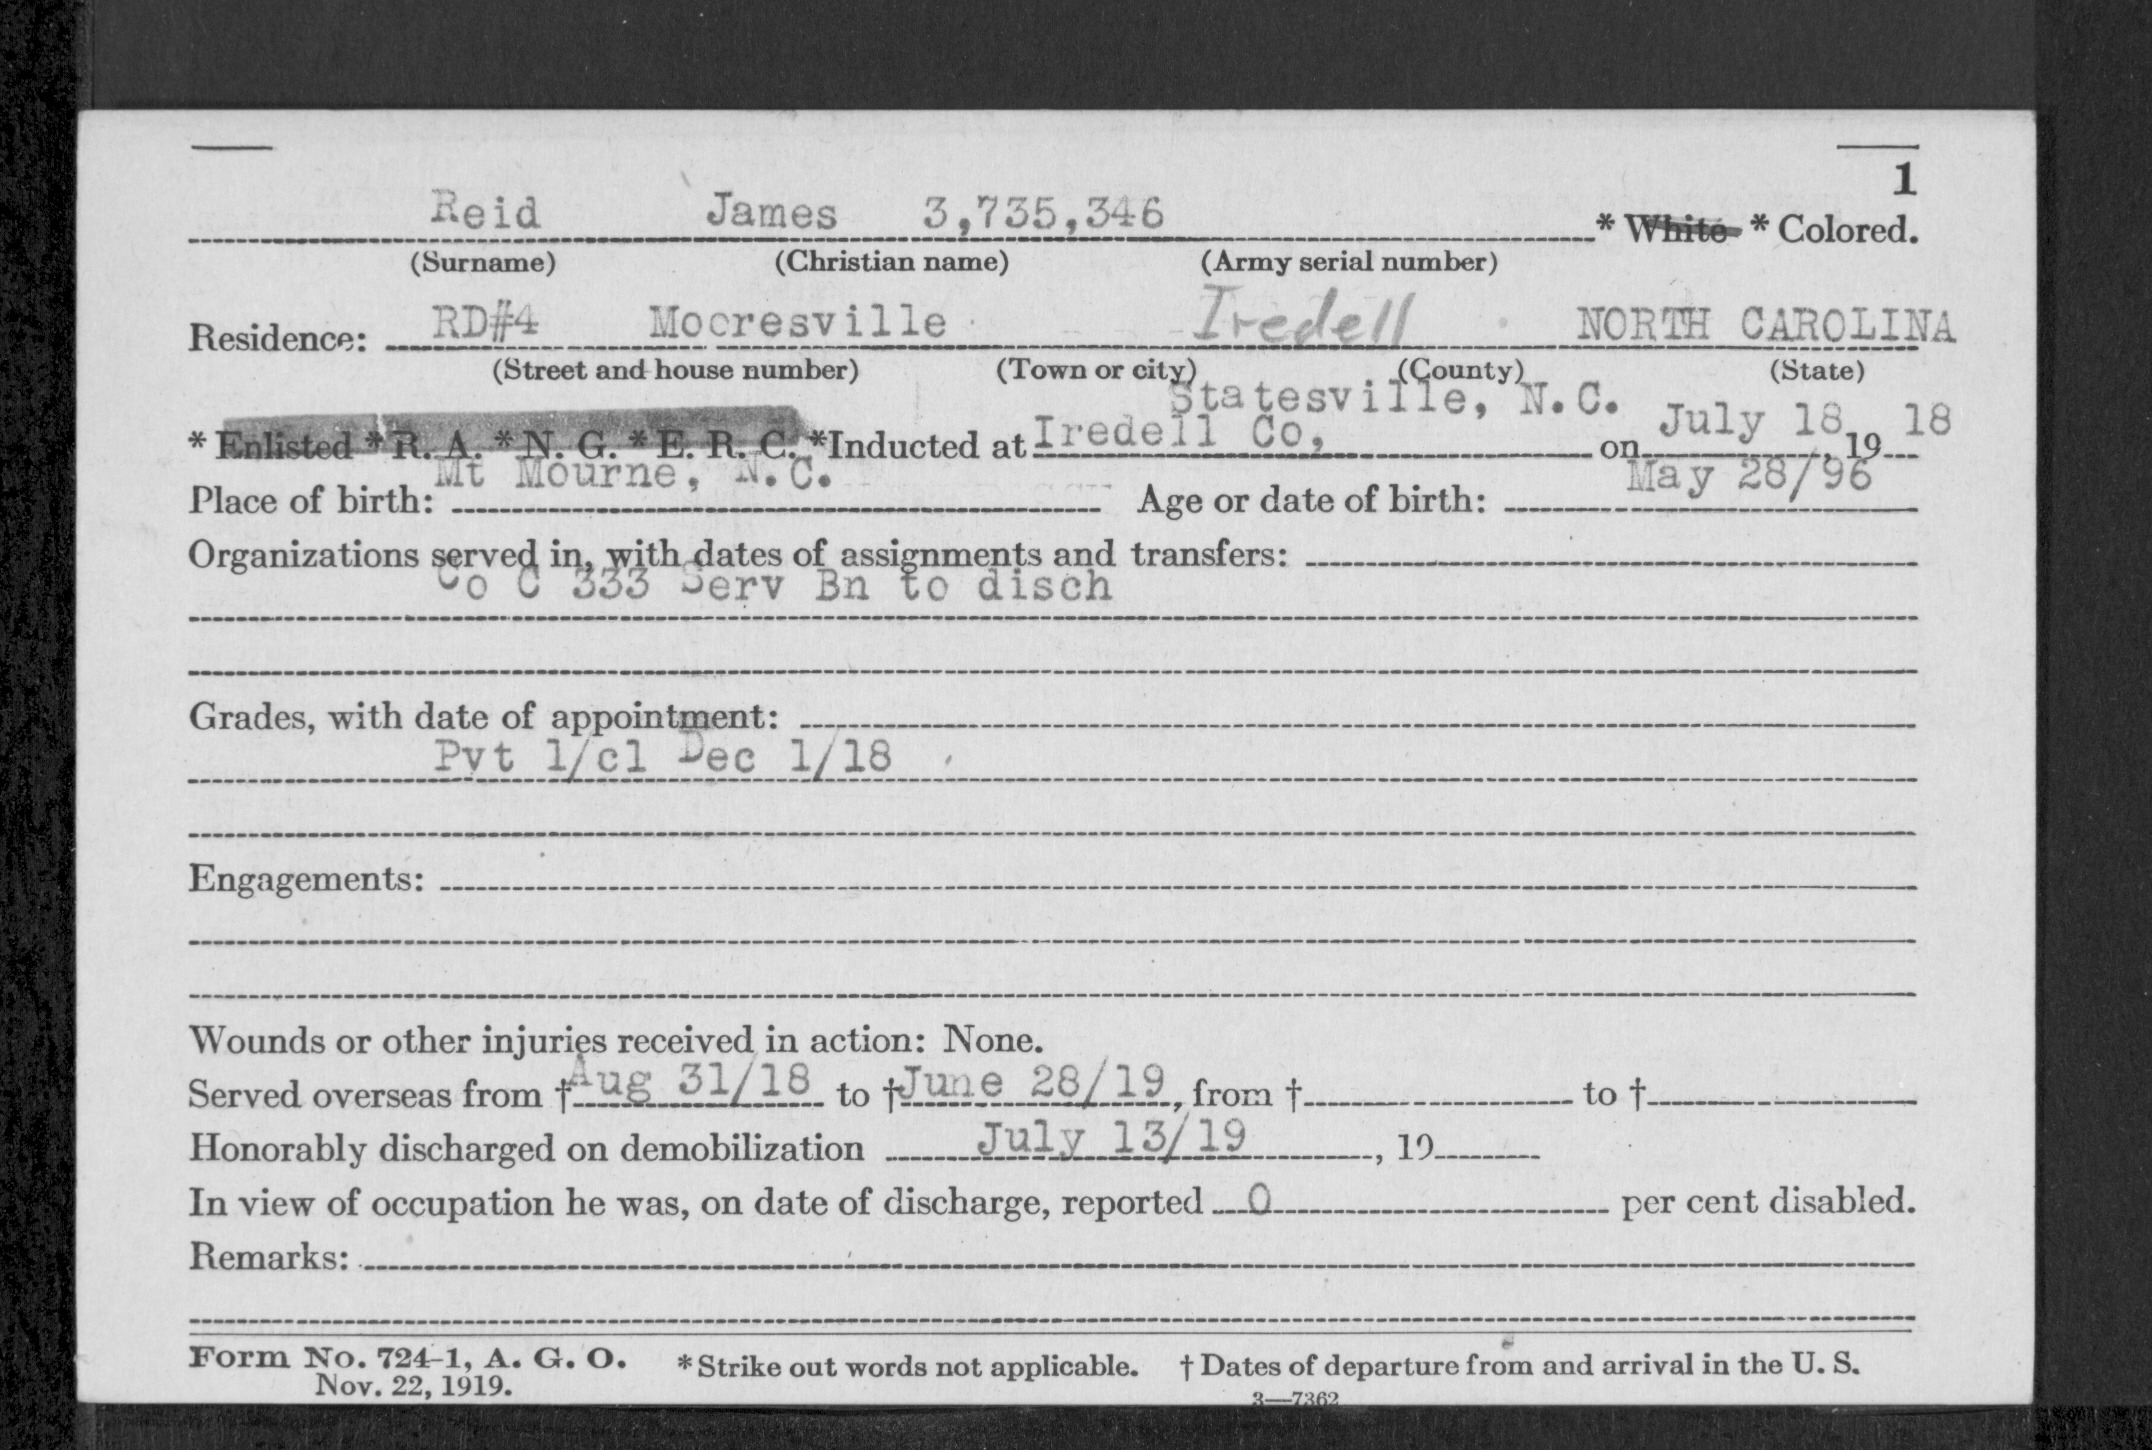 1
Reid James 3,735,346 * White * Colored.
(Surname) (Christian name) (Army serial number)
Residence: RD#4 Mooresville Iredell NORTH CAROLINA
(Street and house number) (Town or city) (County) (State)
Statesville, N.C.
* Enlisted * R. A. * N. G. * E. R. C. *Inducted at Iredell Co, on July 18, 19 18
Place of birth: Mt Mourne, N.C. Age or date of birth: May 28/96
Organizations served in, with dates of assignments and transfers:
Co C 333 Serv Bn to disch
Grades, with date of appointment:
Pvt 1/cl Dec 1/18
Engagements:
Wounds or other injuries received in action: None.
Served overseas from † Aug 31/18 to † June 28/19, from † to †
Honorably discharged on demobilization July 13/19, 19
In view of occupation he was, on date of discharge, reported 0 per cent disabled.
Remarks:
Form No. 724-1, A. G. O. * Strike out words not applicable. † Dates of departure from and arrival in the U. S.
Nov. 22, 1919.
3—7362